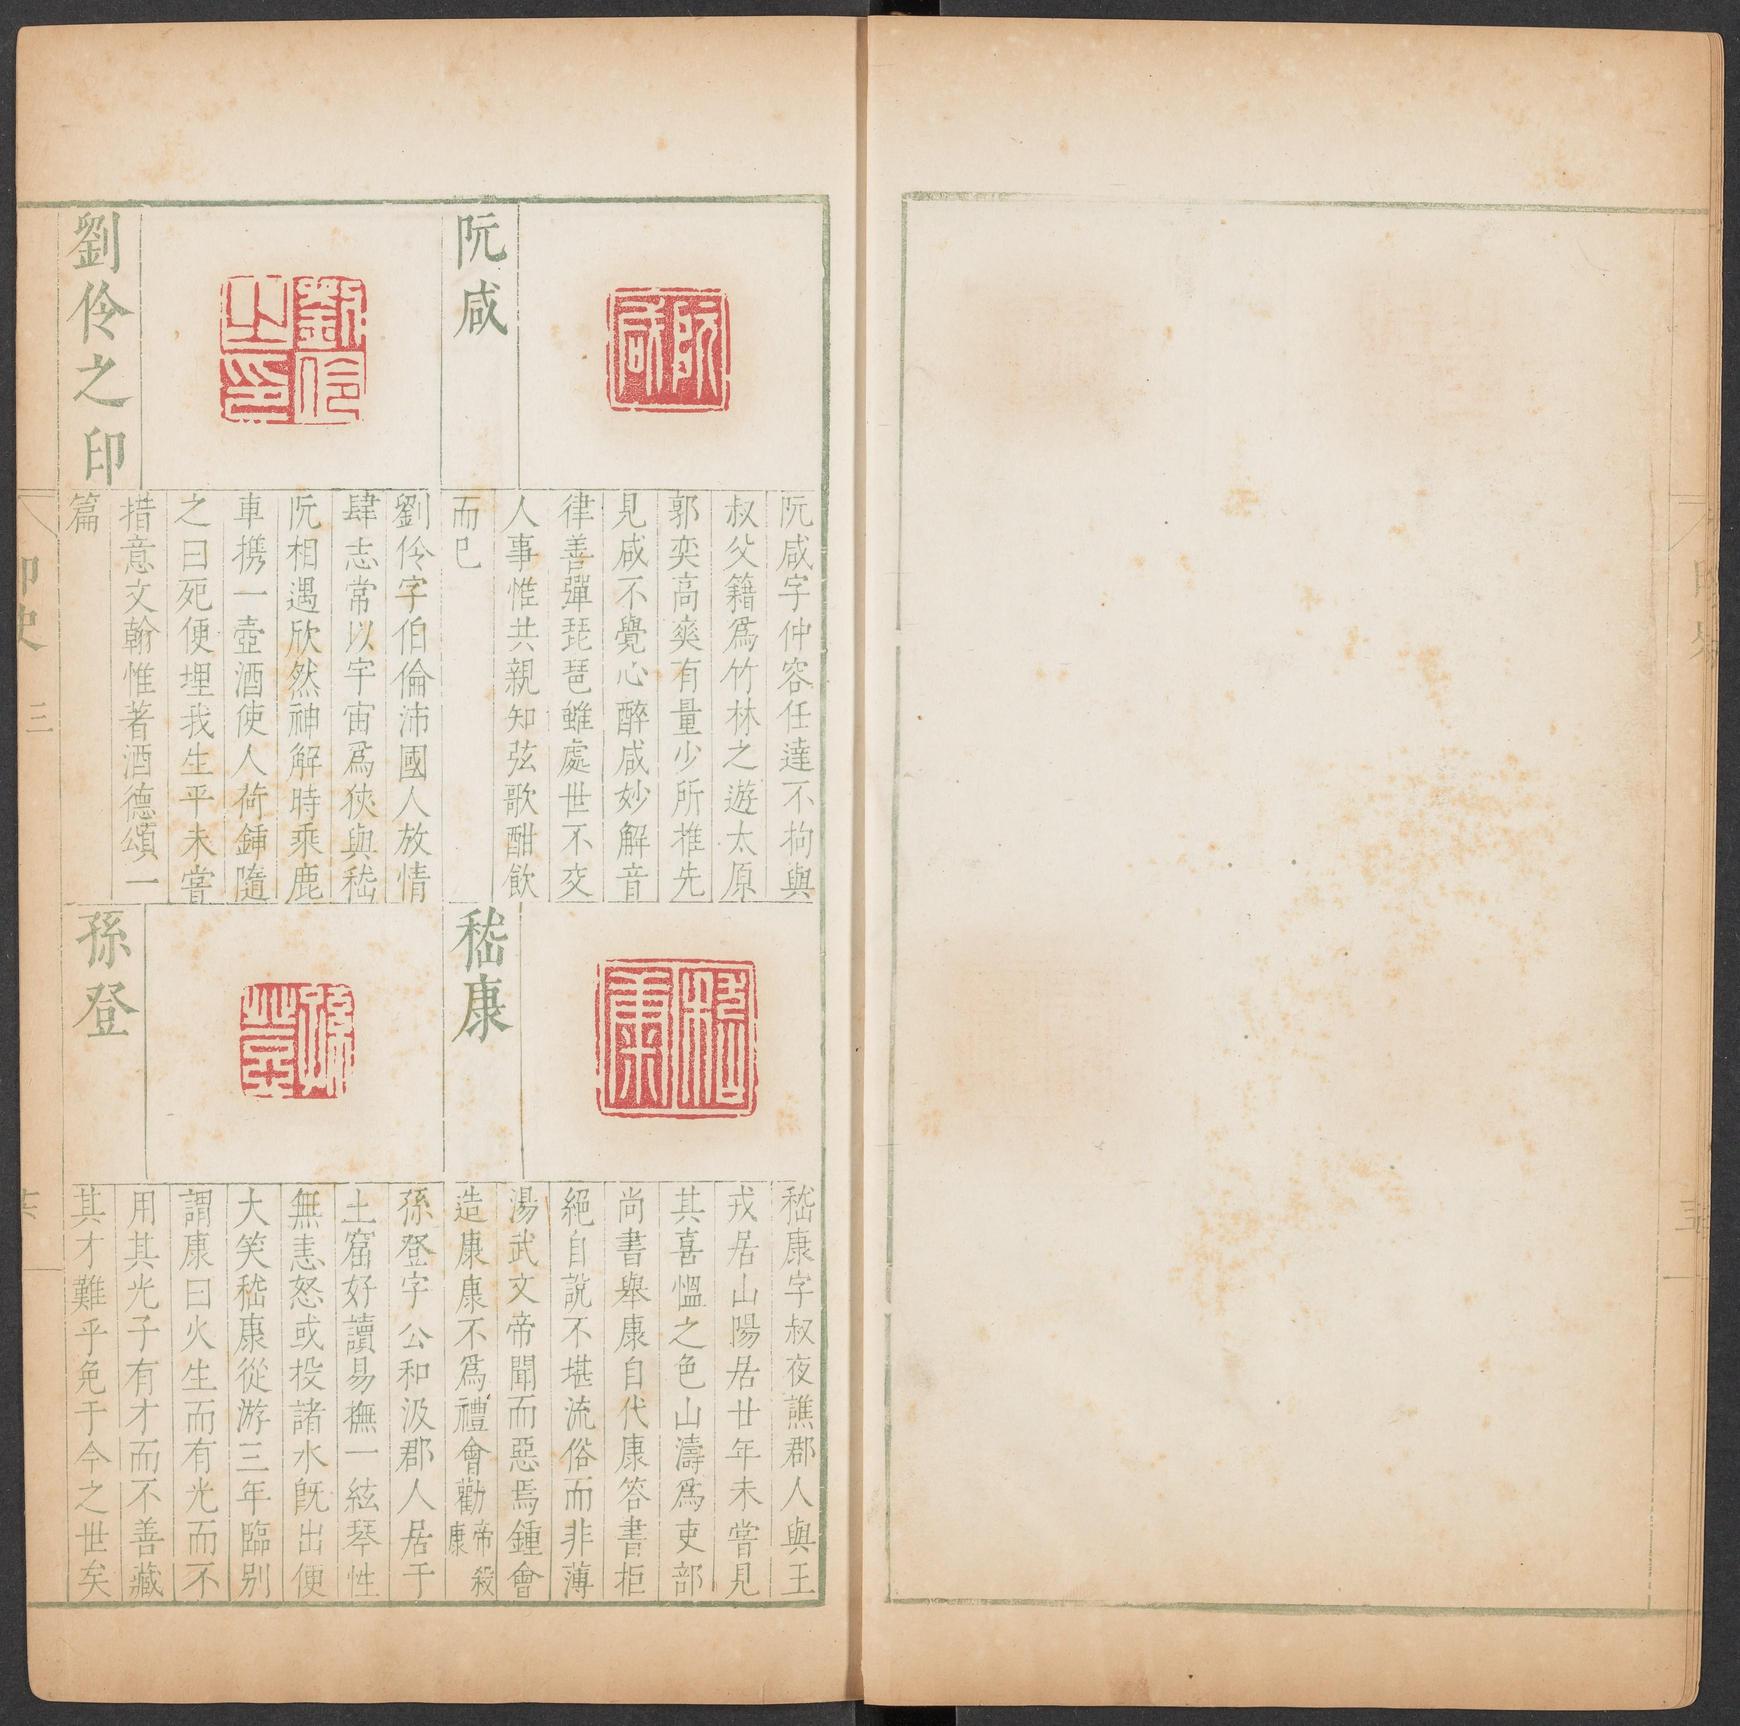 阮咸
阮咸字仲容任達不拘與
叔父籍爲竹林之遊太原
郭奕高爽有量少所推先
見咸不覺心醉咸妙解音
律善彈琵琶雖處世不交
人事惟共親知弦歌酣飲
而已
劉伶之印
劉伶字伯倫沛國人放情
肆志常以宇宙爲狹與嵇
阮相遇欣然神解時乘鹿
車携一壺酒使人荷鍤隨
之曰死便埋我生平未甞
措意文翰惟著酒德頌一
篇
嵇康
嵇康字叔夜譙郡人與王
戎居山陽居廿年未甞見
其喜慍之色山濤爲吏部
尚書舉康自代康答書拒
絕自說不堪流俗而非薄
湯武文帝聞而惡焉鍾會
造康康不爲禮會勸帝殺康
孫登
孫登字公和汲郡人居于
土窟好讀易撫一絃琴性
無恚怒或投諸水旣出便
大笑嵇康從游三年臨别
謂康曰火生而有光而不
用其光子有才而不善藏
其才難乎免于今之世矣
印史
三